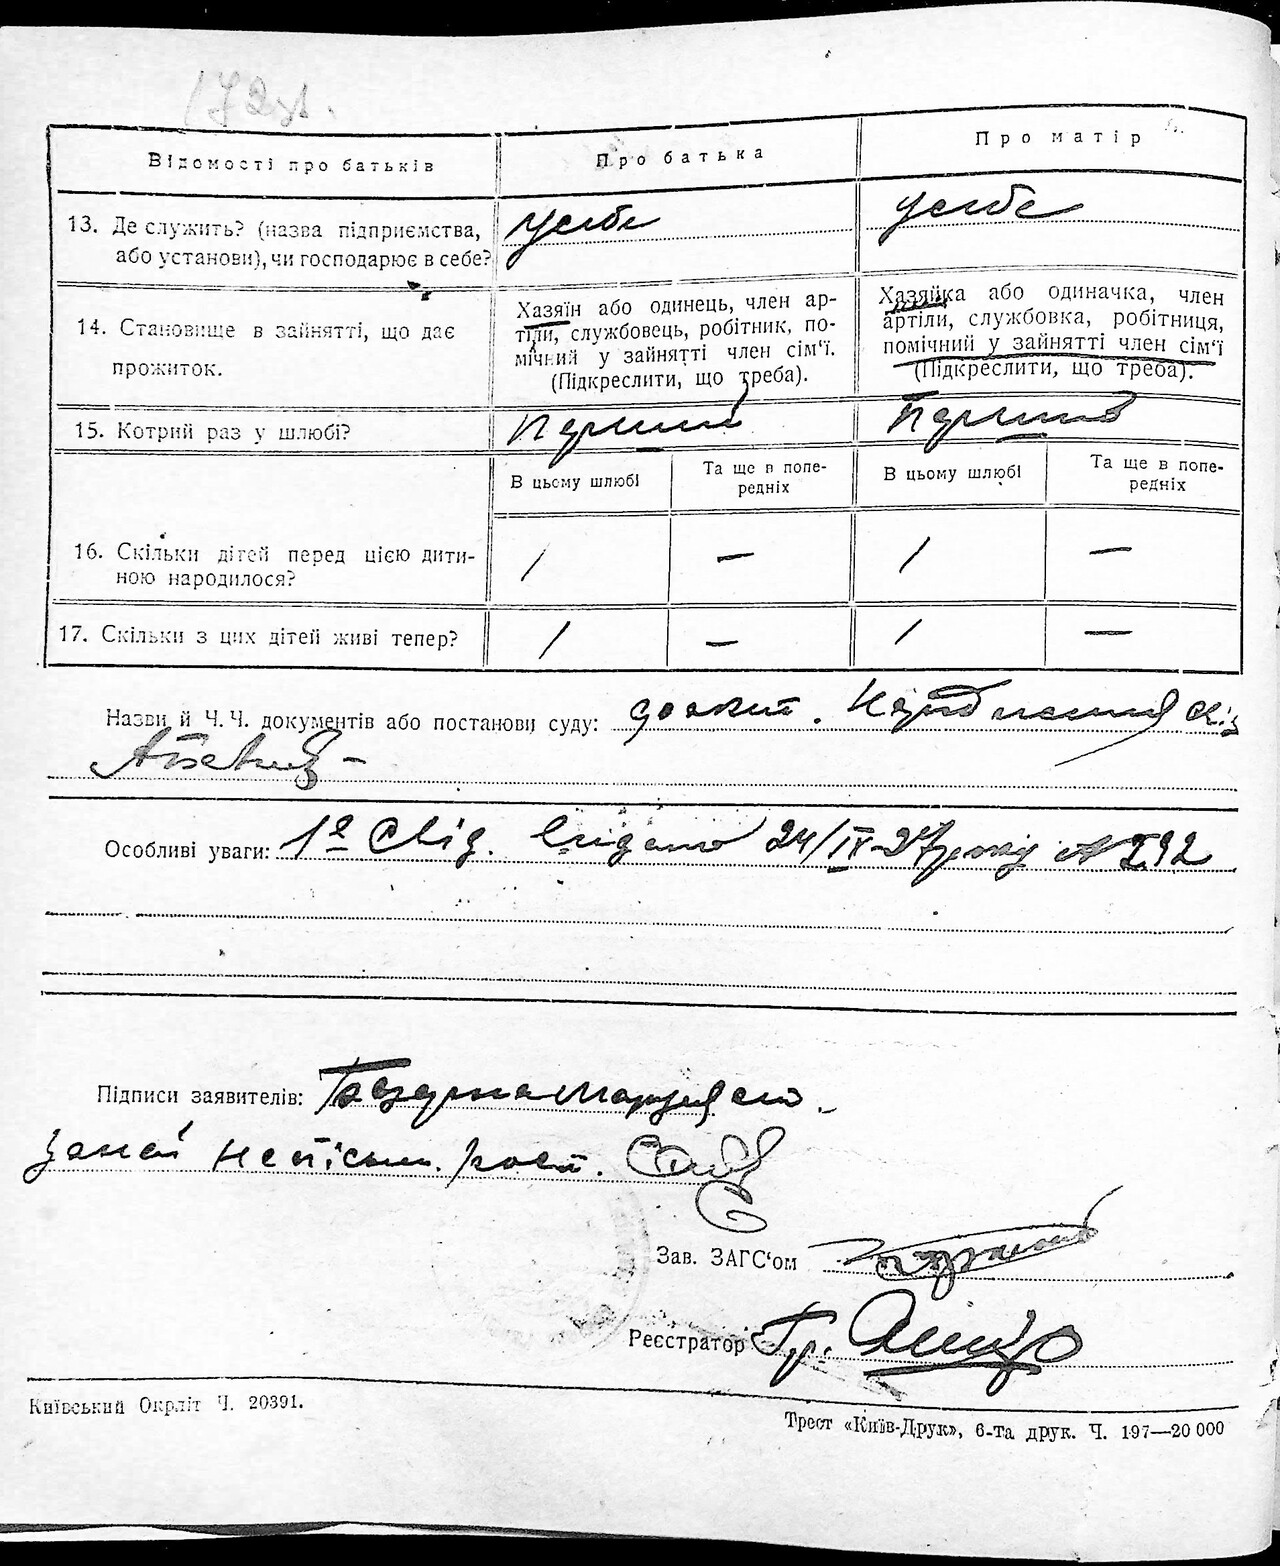 172зв.
Відомості про батьків
Про батька
Про матір
13. Де служить? (назва підприємства,
або установи), чи господарює в себе?
у себе
у себе
14. Становище в зайнятті, що дає
прожиток.
Хазяїн або одинець, член ар-
тіли, службовець, робітник, по-
мічний у зайнятті член сім'ї.
(Підкреслити, що треба).
Хазяйка або одиначка, член
артіли, службовка, робітниця,
помічний у зайнятті член сім'ї
(Підкреслити, що треба).
15. Котрий раз у шлюбі?
перший
перший
В цьому шлюбі
Та ще в попе-
редніх
В цьому шлюбі
Та ще в попе-
редніх
16. Скільки дітей перед цією дити-
ною народилося?
1 — 1 —
17. Скільки з цих дітей живі тепер?
1 — 1 —
Назви й Ч. Ч. документів або постанови суду:
Особливі уваги: 1е свід. видано 24/IX-27 року № 292
Підписи заявителів:
Зав. ЗАГС'ом
Реєстратор Гр.
Київський Окрліт Ч. 20391.
Трест «Київ-Друк», 6-та друк. Ч. 197—20 000